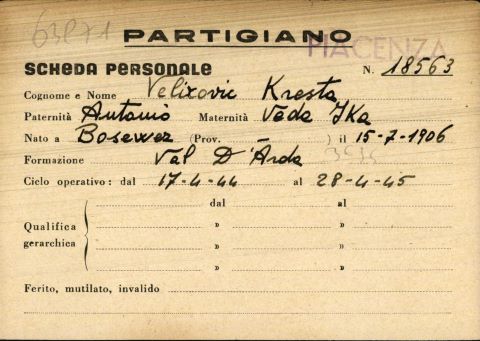 63871
PARTIGIANO
PIACENZA
SCHEDA PERSONALE N. 18563
Cognome e Nome Velixovic Kresta
Paternità Antonio Maternità Veda Ika
Nato a Bosewez (Prov. ) il 15-7-1906
Formazione Val D'Arda
Ciclo operativo: dal 17-4-44 al 28-4-45
dal al
Qualifica » »
gerarchica » »
» »
Ferito, mutilato, invalido